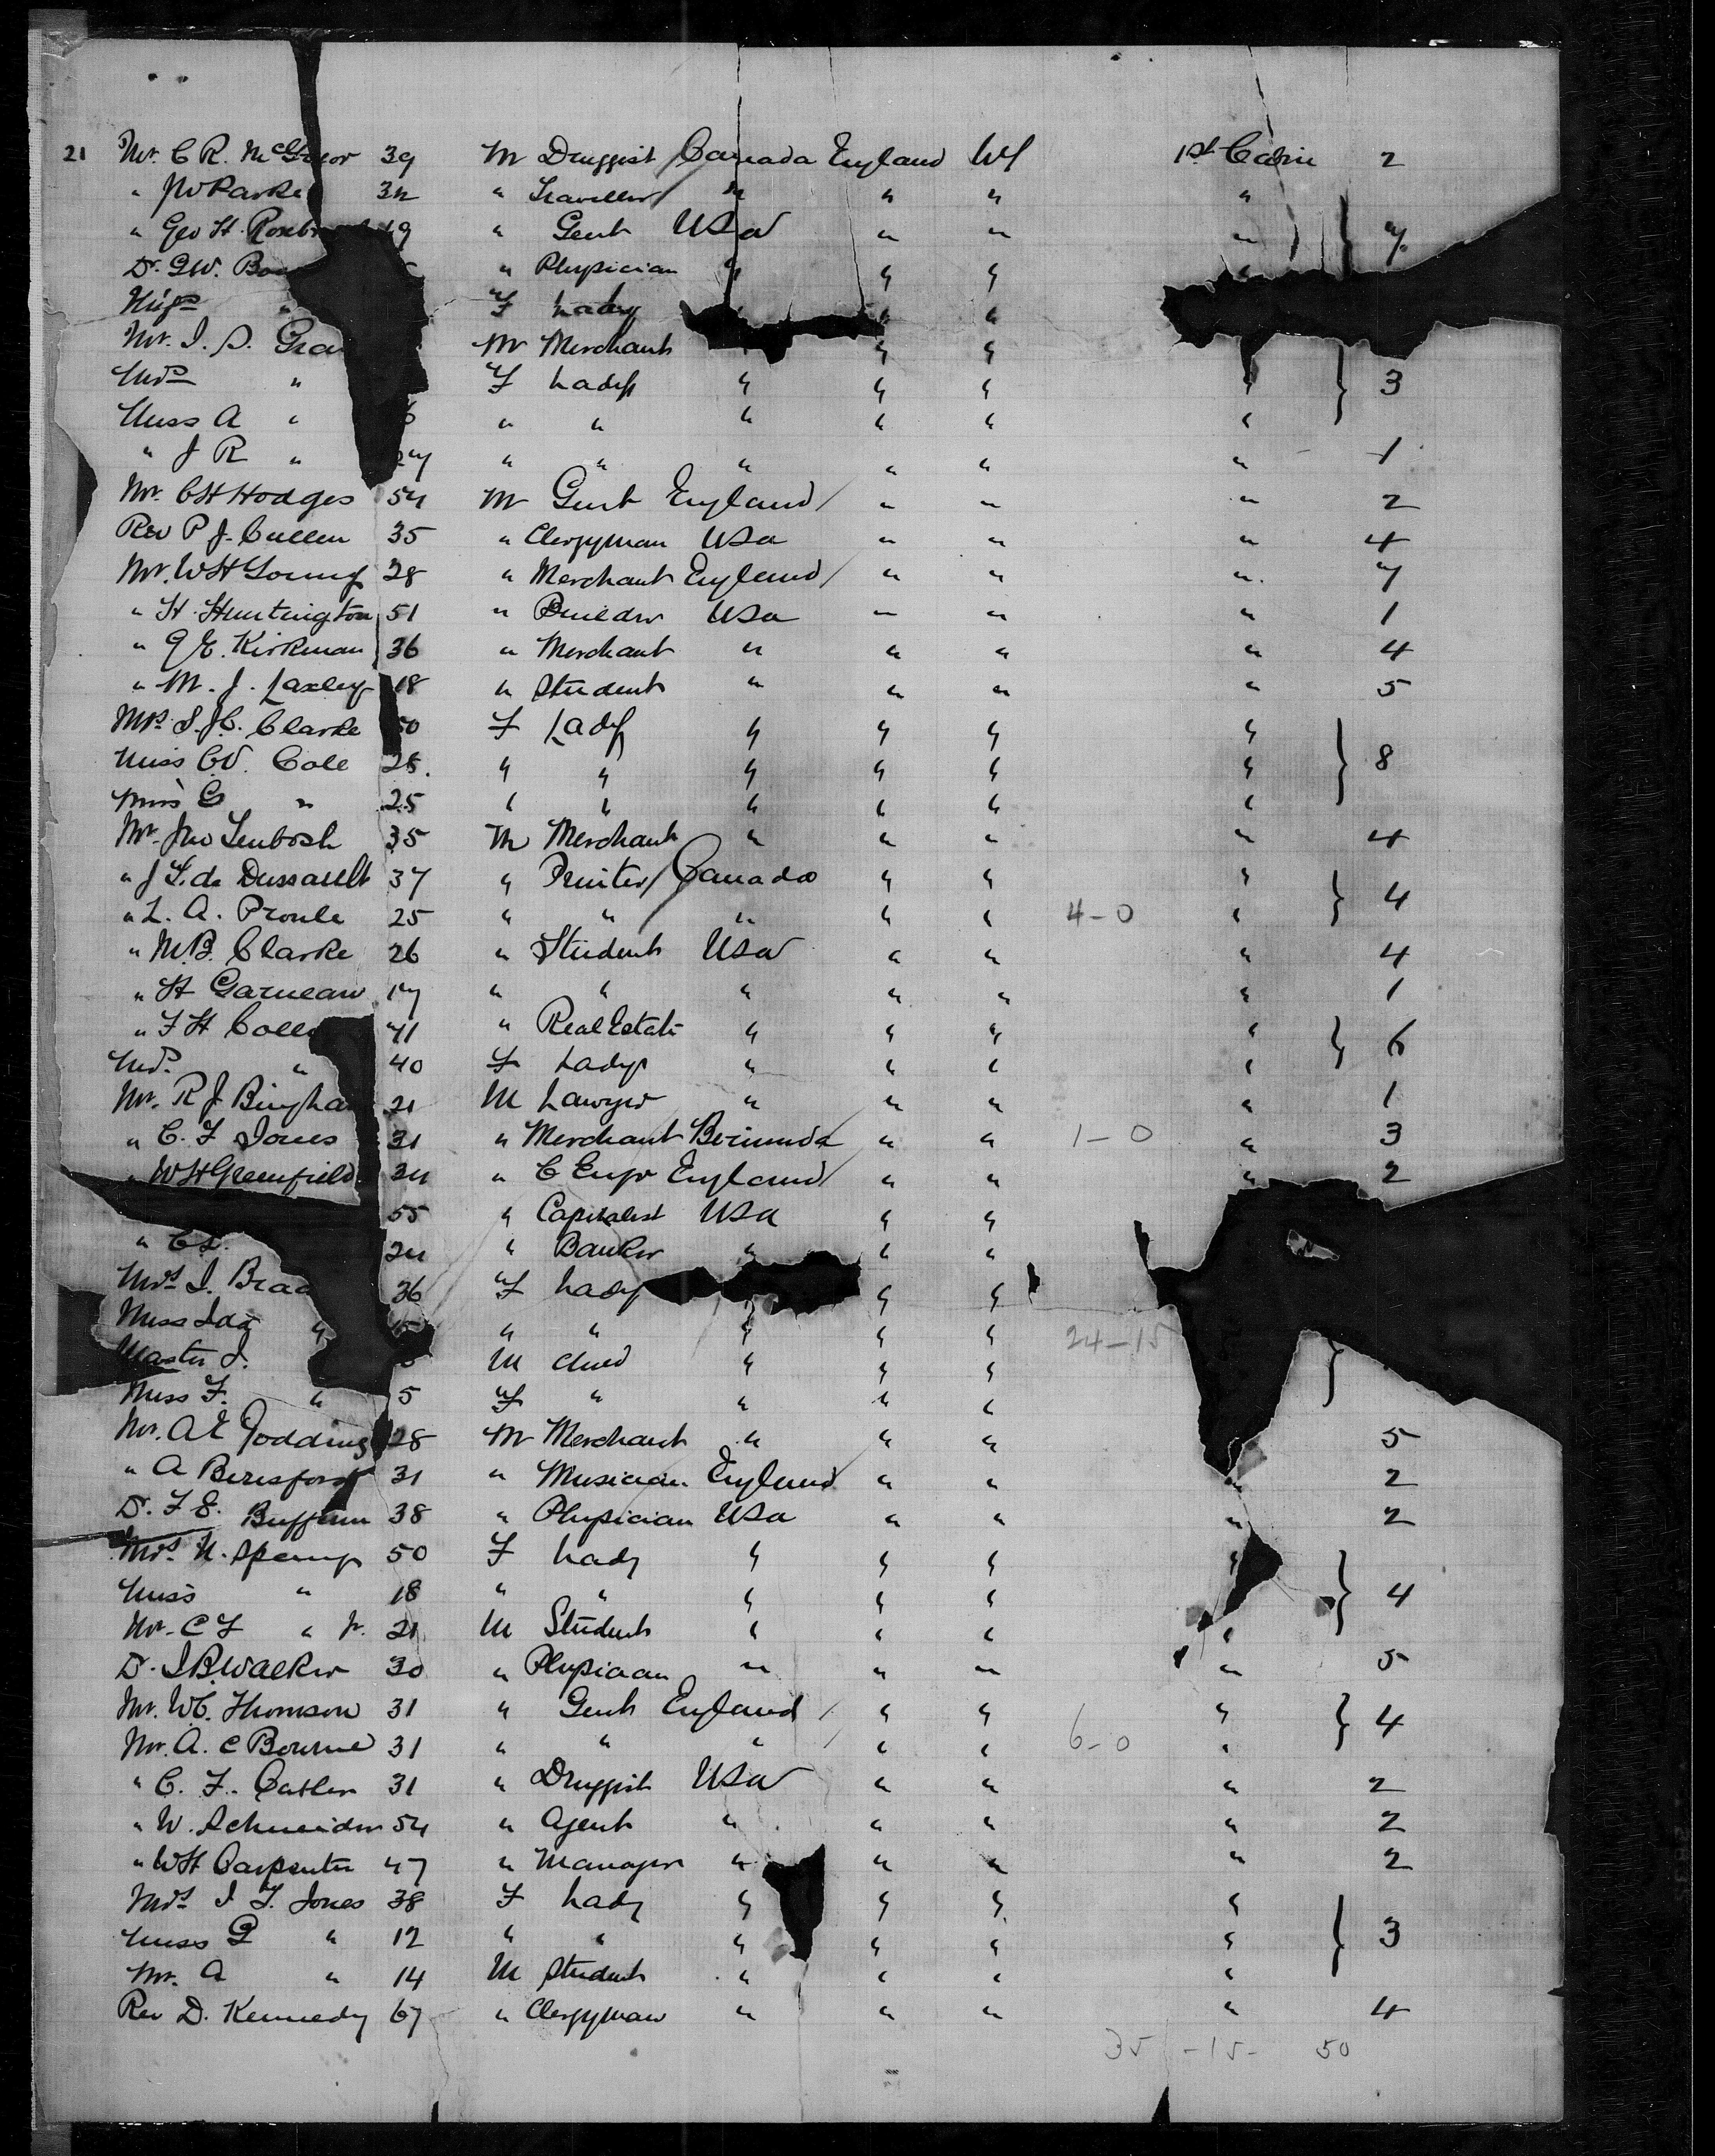 21 Mr. C R. McGregor 39 M Druggist Canada England NY 1st Cabin 2
" Jno Parke 32 " Traveller " " " "
" Geo H. 49 " Gent USA " " " 7
Dr. G W. " Physician " " "
Miss " F Lady " "
Mr. I. S. M Merchant " "
Mrs " F Lady " " " " 3
Miss A " 6 " " " " " "
" J R " 27 " " " " " " 1
Mr. C H Hodges 54 M Gent England " " " 2
Rev P J. Cullen 35 " Clergyman USA " " " 4
Mr. W H Young 28 " Merchant England " " " 7
" H. Huntington 51 " Builder USA " " " 1
" G E. Kirkman 36 " Merchant " " " " 4
" M. J. Laxley 18 " Student " " " " 5
Mrs. S. J C. Clarke 50 F Lady " " " "
Miss C V. Cole 28. " " " " " " 8
Miss G " 25 " " " " " "
Mr. Jno 35 M Merchant " " " " 4
" J F. de Dussault 37 " Printer Canada " " "
" L. A. Proule 25 " " " " " 4-0 " 4
" M. B. Clarke 26 " Student USA " " " 4
" H Garneau 17 " " " " " " 1
" F H 41 " Real Estate " " " "
Mrs. " 40 F Lady " " " " 6
Mr. R J Bingha 21 M Lawyer " " " " 1
" C. F Jones 31 " Merchant Bermuda " " 1-0 " 3
" W H Greenfield 34 " C Engr England " " " 2
55 " Capitalist USA " "
" 24 " Banker " " "
Mrs. I. 36 F Lady " "
Miss Ida " " " " " " 24-15
Master I. M Child " " "
Miss F. " 5 F " " " "
Mr. A E Godding 28 M Merchant " " " 5
" A Beresford 31 " Musician England " " " 2
D. F E. Buffum 38 " Physician USA " " " 2
Mrs. N. 50 F Lady " " " "
Miss " 18 " " " " " 4
Mr. C F " Jr. 21 M Student " " " "
D. I B. Walker 30 " Physician " " " " 5
Mr. W C. Thomson 31 " Gent England " " "
Mr. A. C Bourne 31 " " " " " 6-0 " 4
" C. F. 31 " Druggist USA " " " 2
" W. Schneider 54 " Agent " " " " 2
" W H Carpenter 47 " Manager " " " " 2
Mrs I F. Jones 38 F Lady " " " "
Miss G " 12 " " " " " " 3
Mr. A " 14 M Student " " " "
Rev D. Kennedy 67 " Clergyman " " " " 4
35 -15- 50